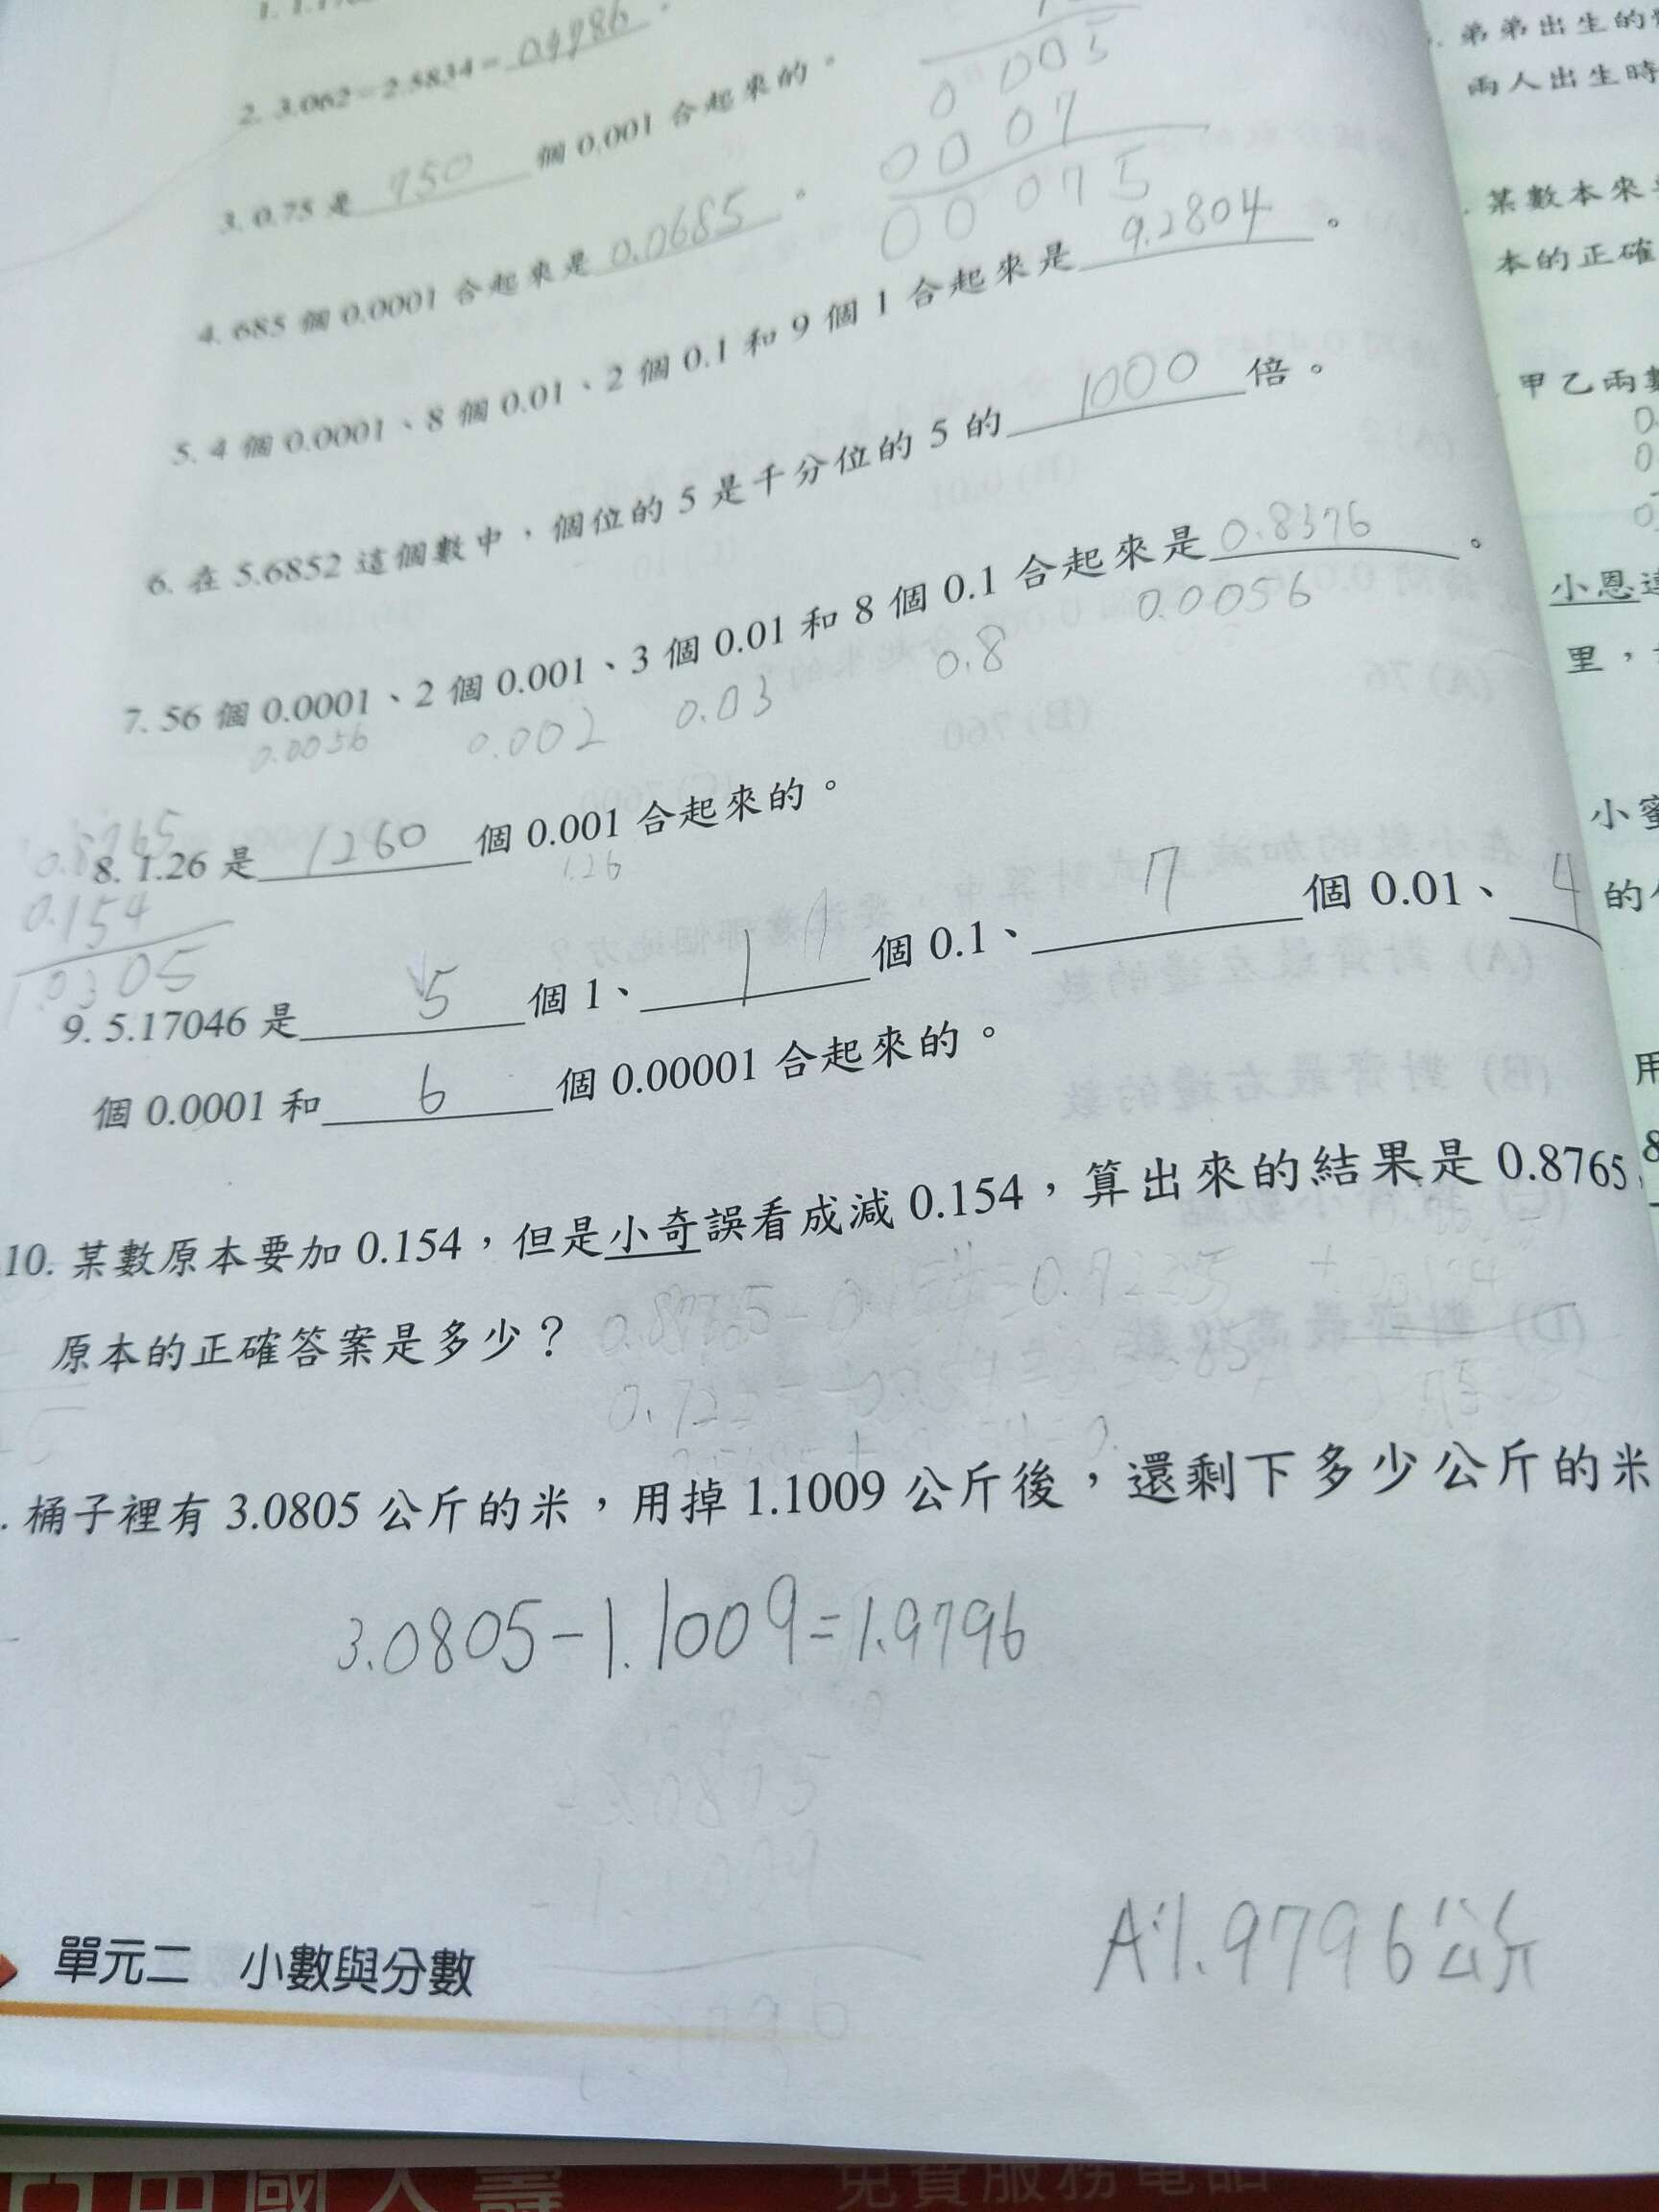 2. 3.062－2.5834＝ 0.4786 。
0 003
3. 0.75 是 750 個 0.001 合起來的。
0007
00075
4. 685 個 0.0001 合起來是 0.0685 。
5. 4 個 0.0001、8 個 0.01、2 個 0.1 和 9 個 1 合起來是 9.2804 。
6. 在 5.6852 這個數中，個位的 5 是千分位的 5 的 1000 倍。
7. 56 個 0.0001、2 個 0.001、3 個 0.01 和 8 個 0.1 合起來是 0.8376 。
0.0056 0.002 0.03 0.8 0.0056
8. 1.26 是 1260 個 0.001 合起來的。
1.26
0.8765
0.154
1.0305
9. 5.17046 是 5 個 1、 1 個 0.1、 7 個 0.01、 4
個 0.0001 和 6 個 0.00001 合起來的。
10. 某數原本要加 0.154，但是小奇誤看成減 0.154，算出來的結果是 0.8765，
原本的正確答案是多少？
. 桶子裡有 3.0805 公斤的米，用掉 1.1009 公斤後，還剩下多少公斤的米
3.0805－1.1009＝1.9796
A:1.9796公斤
單元二 小數與分數
弟弟出生的
兩人出生時
某數本來
本的正確
甲乙兩數
小恩
里，
小蜜
的
用
8
中國人壽
免費服務電話